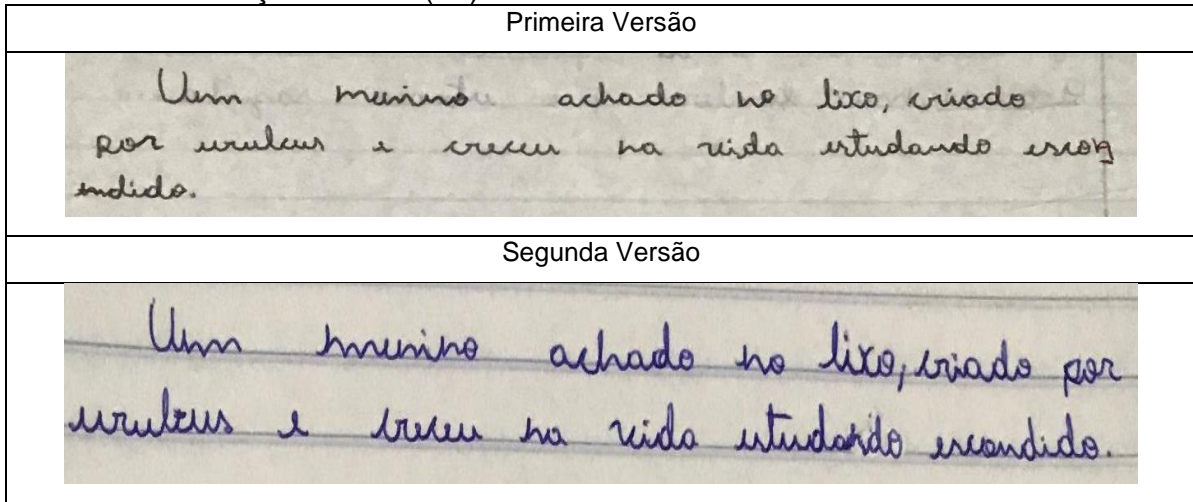 Primeira Versão
Um menino achado no lixo, criado
por urubus e creceu na vida estudando escon
ndido.
Segunda Versão
Um menino achado no lixo, criado por
urubus e creceu na vida estudando escondido.